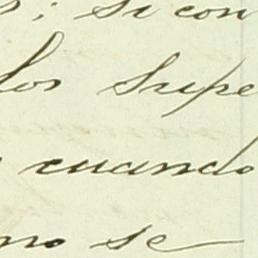 ; si con
los Supe
cuando
no se